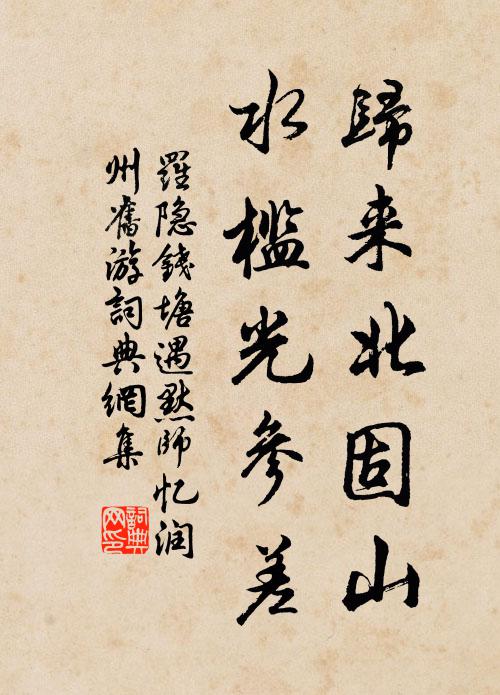 歸来北固山
水檻光參差
羅隐錢塘遇默師忆润
州舊游詞典網集
詞典网印